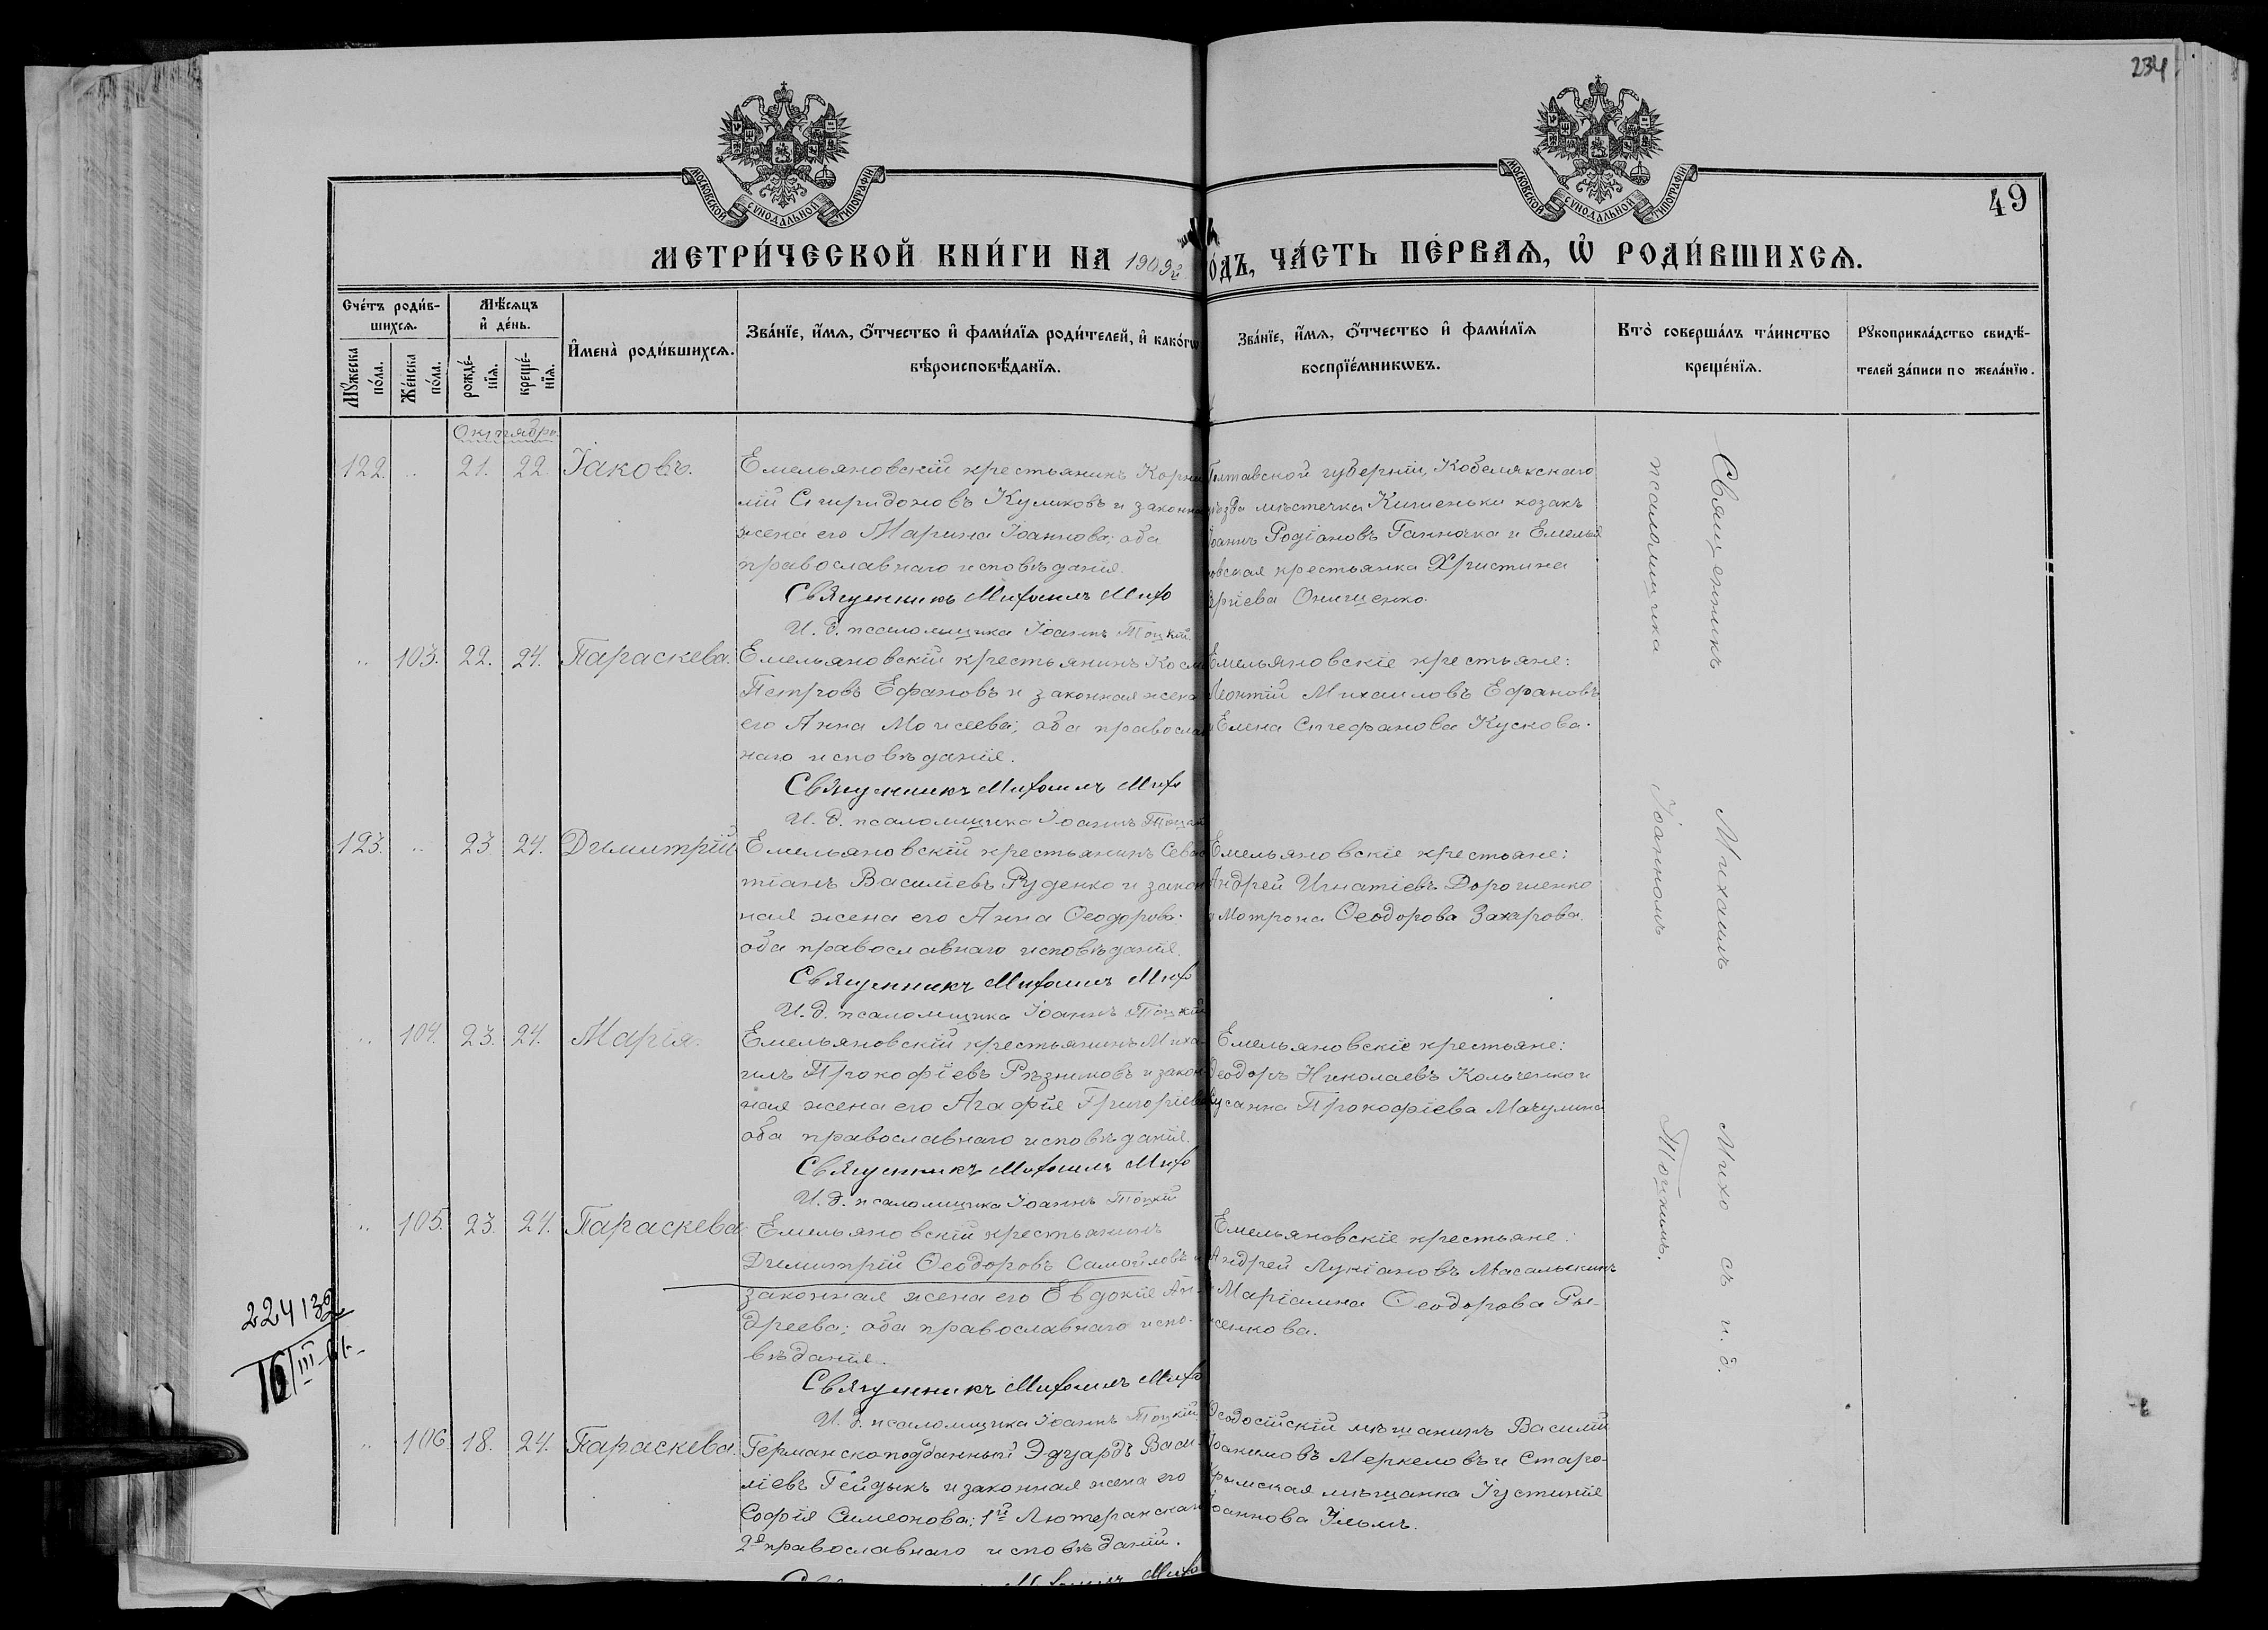 234
49
МОСКОВСКОЙ СѴНОДАЛЬНОЙ ТИПОГРАФІИ
МОСКОВСКОЙ СѴНОДАЛЬНОЙ ТИПОГРАФІИ
МЕТРИ́ЧЕСКОЙ КНИ́ГИ НА 1909й
О́ДЪ, ЧА́СТЬ ПЕ́РВАѦ, Ѡ҆ РОДИ́ВШИХСѦ.
Сче́тъ роди́в-
шихсѧ.
Мꙋ́жеска
по́ла.
Же́нска
по́ла.
Мѣ́сѧцъ
и҆ де́нь.
рожде́-
нїѧ.
креще́-
нїѧ.
И҆мена̀ роди́вшихсѧ.
Зва́нїе, и҆́мѧ, о҆́тчество и҆ фами́лїѧ роди́телей, и҆ како́гѡ
вѣроисповѣ́данїѧ.
Зва́нїе, и҆́мѧ, о҆́тчество и҆ фами́лїѧ
воспрїе́мникѡвъ.
Кто̀ соверша́лъ та́инство
креще́нїѧ.
Рꙋкоприкла́дство свидѣ́-
телей за́писи по жела́нїю.
Октября.
122. .. 21. 22. Іаковъ.
Емельяновскій крестьянинъ Корни
лій Спиридоновъ Куликовъ и законна
жена его Марина Іоаннова; оба
православнаго исповѣданія.
Священникъ Михаилъ Михо
И. д. псаломщика Іоаннъ Тоцкій.
Полтавской губерніи, Кобелякскаго
уѣзда мѣстечка Кишеньки козакъ
Іоаннъ Родіановъ Ганночка и Емелья
новская крестьянка Христина
Онищенко.
.. 103. 22. 24. Параскева.
Емельяновскій крестьянинъ Косм
Петровъ Ефановъ и законная жена
его Анна Моисеева; оба правосла
наго исповѣданія.
Священникъ Михаилъ Михо
И. д. псаломщика Іоаннъ Тоцкі
Емельяновскіе крестьяне:
Леонтій Михаиловъ Ефановъ
и Елена Стефанова Кускова.
123. .. 23 24. Димитрій
Емельяновскій крестьянинъ Севас
тіанъ Василіевъ Руденко и закон
ная жена его Анна Ѳеодорова:
оба православнаго исповѣданія.
Священникъ Михаилъ Михо
И. д. псаломщика Іоаннъ Тоцкій
Емельяновскіе крестьяне:
Андрей Игнатіевъ Дорошенко
и Мотрона Ѳеодорова Захарова.
.. 104. 23. 24. Марія.
Емельяновскій крестьянинъ Миха-
илъ Прокофіевъ Рѣзниковъ и закон
ная жена его Агафія Григоріева
оба православнаго исповѣданія.
Священникъ Михаилъ Михо
И. д. псаломщика Іоаннъ Тоцкій
Емельяновскіе крестьяне:
Ѳеодоръ Николаевъ Кольченко и
Сусанна Прокофіева Мачулина
.. 105. 23. 24. Параскева
Емельяновскій крестьянинъ
Димитрій Ѳеодоровъ Самойловъ и
законная жена его Евдокія Ан-
дреева; оба православнаго испо-
вѣданія.
Священникъ Михаилъ Михо
И. д. псаломщика Іоаннъ Тоцкій
Емельяновскіе крестьяне:
Андрей Лукіановъ Масалыкинъ
и Маріамна Ѳеодорова Ры-
женкова.
.. 106. 18. 24. Параскева.
Германскоподданный Эдуардъ Васи-
ліевъ Гейдыкъ и законная жена его
Софія Симеонова; 1й Лютеранскаго
2я православнаго исповѣданій.
Ѳеодосійскій мѣщанинъ Василій
Іоакимовъ Меркеловъ и Старо-
Крымская мѣщанка Іустинія
Іоаннова Ульмъ.
Священникъ Михаилъ Михо съ и. д.
псаломщика Іоанномъ Тоцкимъ.
224132
16/III-61.